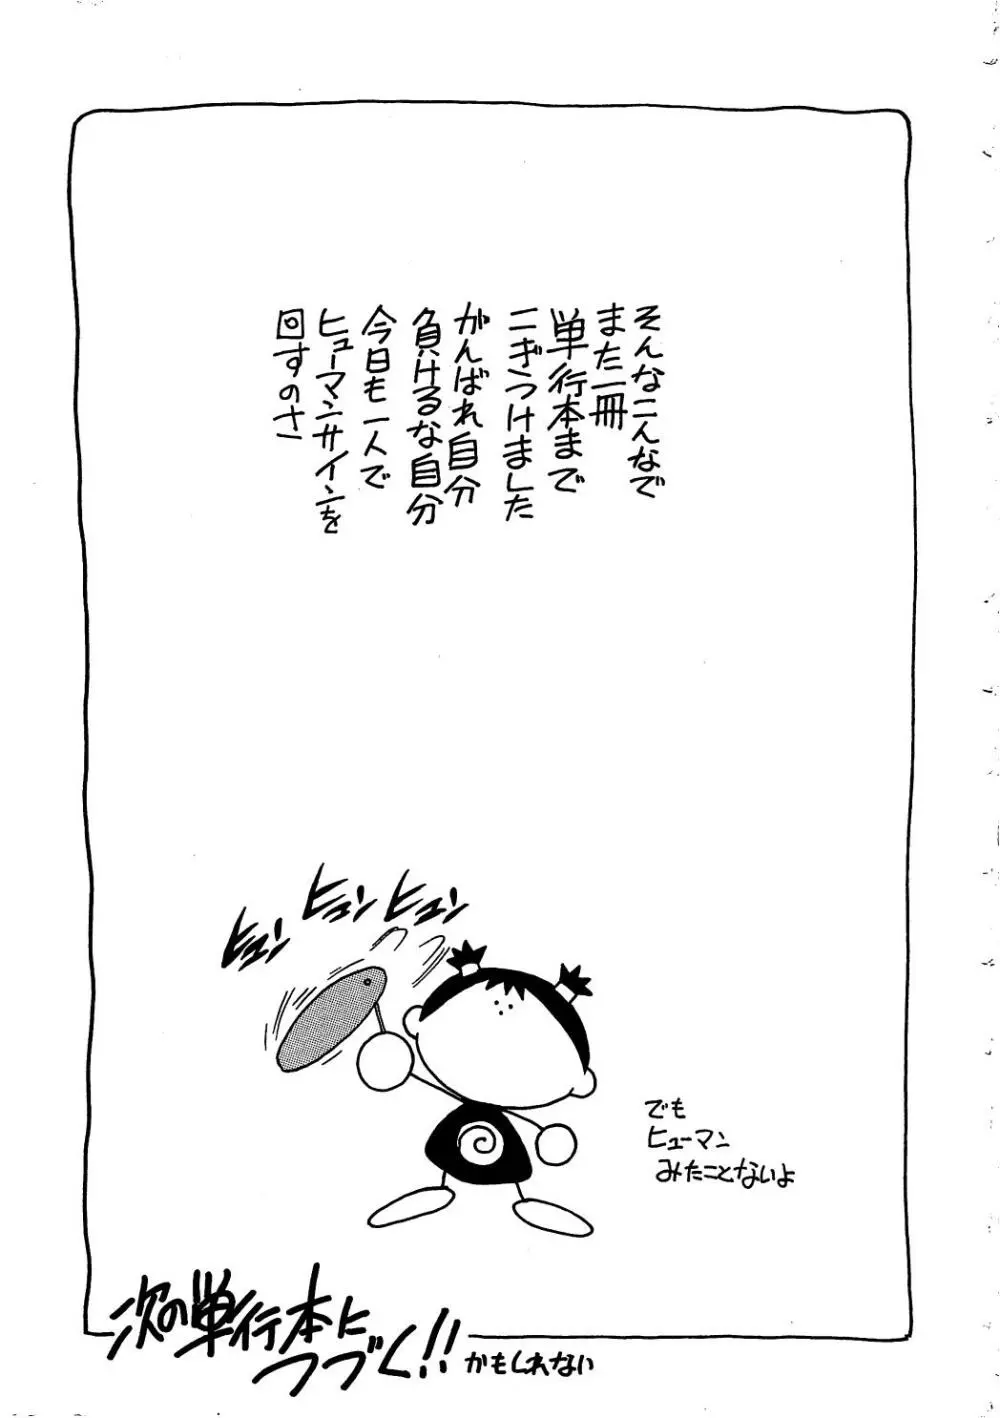 そんなこんなで
また一冊
単行本まで
こぎつけました
がんばれ自分
負けるな自分
今日も一人で
ヒューマンサインを
回すのさ
ヒュン
ヒュン
ヒュン
でも
ヒューマン
みたことないよ
次の単行本に
つづく!!
かもしれない